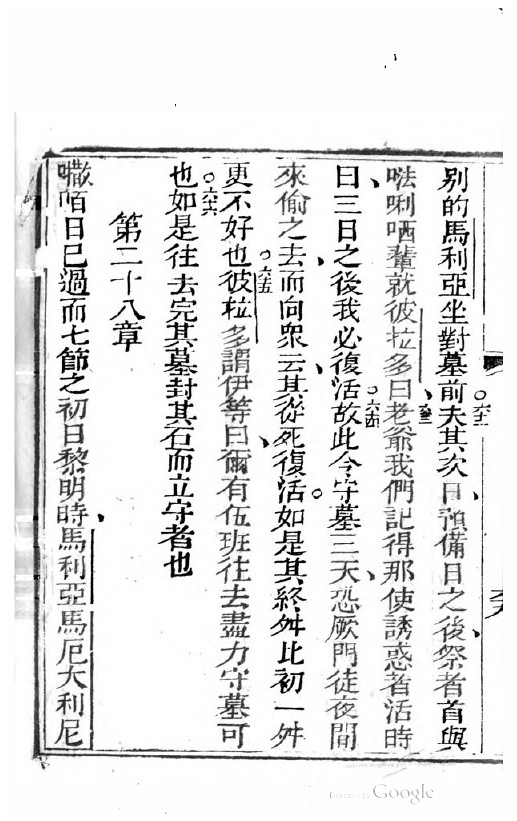 別的馬利亞坐對墓前夫其次日預備日之後祭者首與
六二
𠵽唎哂輩就彼拉多曰老爺我們記得那使誘惑者活時
六三
曰三日之後我必復活故此令守墓三天恐厥門徒夜間
六四
來偷之去而向衆云其從死復活如是其終舛比初一舛
更不好也彼拉多謂伊等曰爾有伍班往去盡力守墓可
六五
也如是往去完其墓封其石而立守者也
六六
第二十八章
𡃤咟日已過而七節之初日黎明時馬利亞馬厄大利尼
Digitized by Google